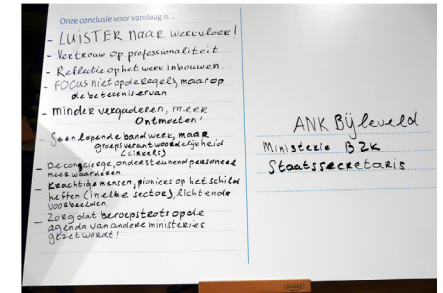 Onze conclusie voor vandaag is...
- LUISTER naar werkvloer!
- Vertrouw op professionaliteit
- Reflectie op het werk inbouwen.
- FOCUS niet op de regels, maar op
de betekenis ervan
- minder vergaderen, meer
Ontmoeten!
- Geen lopende band werk, maar
groepsverantwoordelijkheid
(circels)
- De conciërge, ondersteunend personeel
meer waarderen
- Krachtige mensen, pioniers op het schild
heffen (in elke sector), lichtende
voorbeelden.
- Zorg dat beroepstrots op de
agenda van andere ministeries
gezet wordt!
ANK Bijleveld
Ministerie BZK
Staatssecretaris